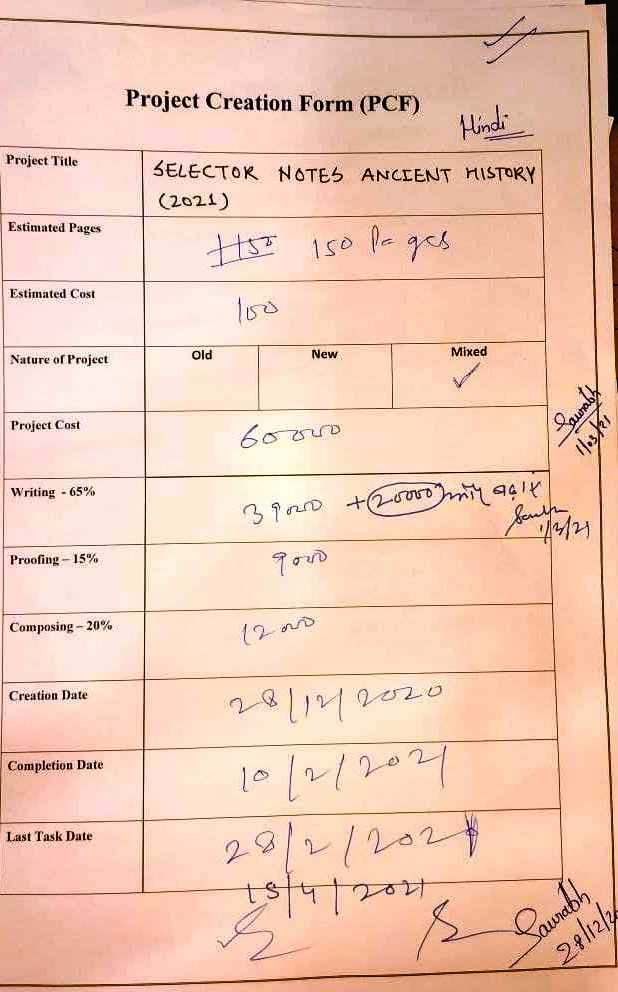 Project Creation Form (PCF)
Hindi
Project Title
SELECTOR NOTES ANCIENT HISTORY
(2021)
Estimated Pages
150 Pages
Estimated Cost
100
Nature of Project
Old New Mixed
✓
Project Cost
60000
Saurabh
1/03/21
Writing - 65%
39000 + 20000
1/3/21
Proofing – 15%
9000
Composing – 20%
12000
Creation Date
28/12/2020
Completion Date
10/2/2021
Last Task Date
28/2/2021
15/4/2021
Saurabh
28/12/20